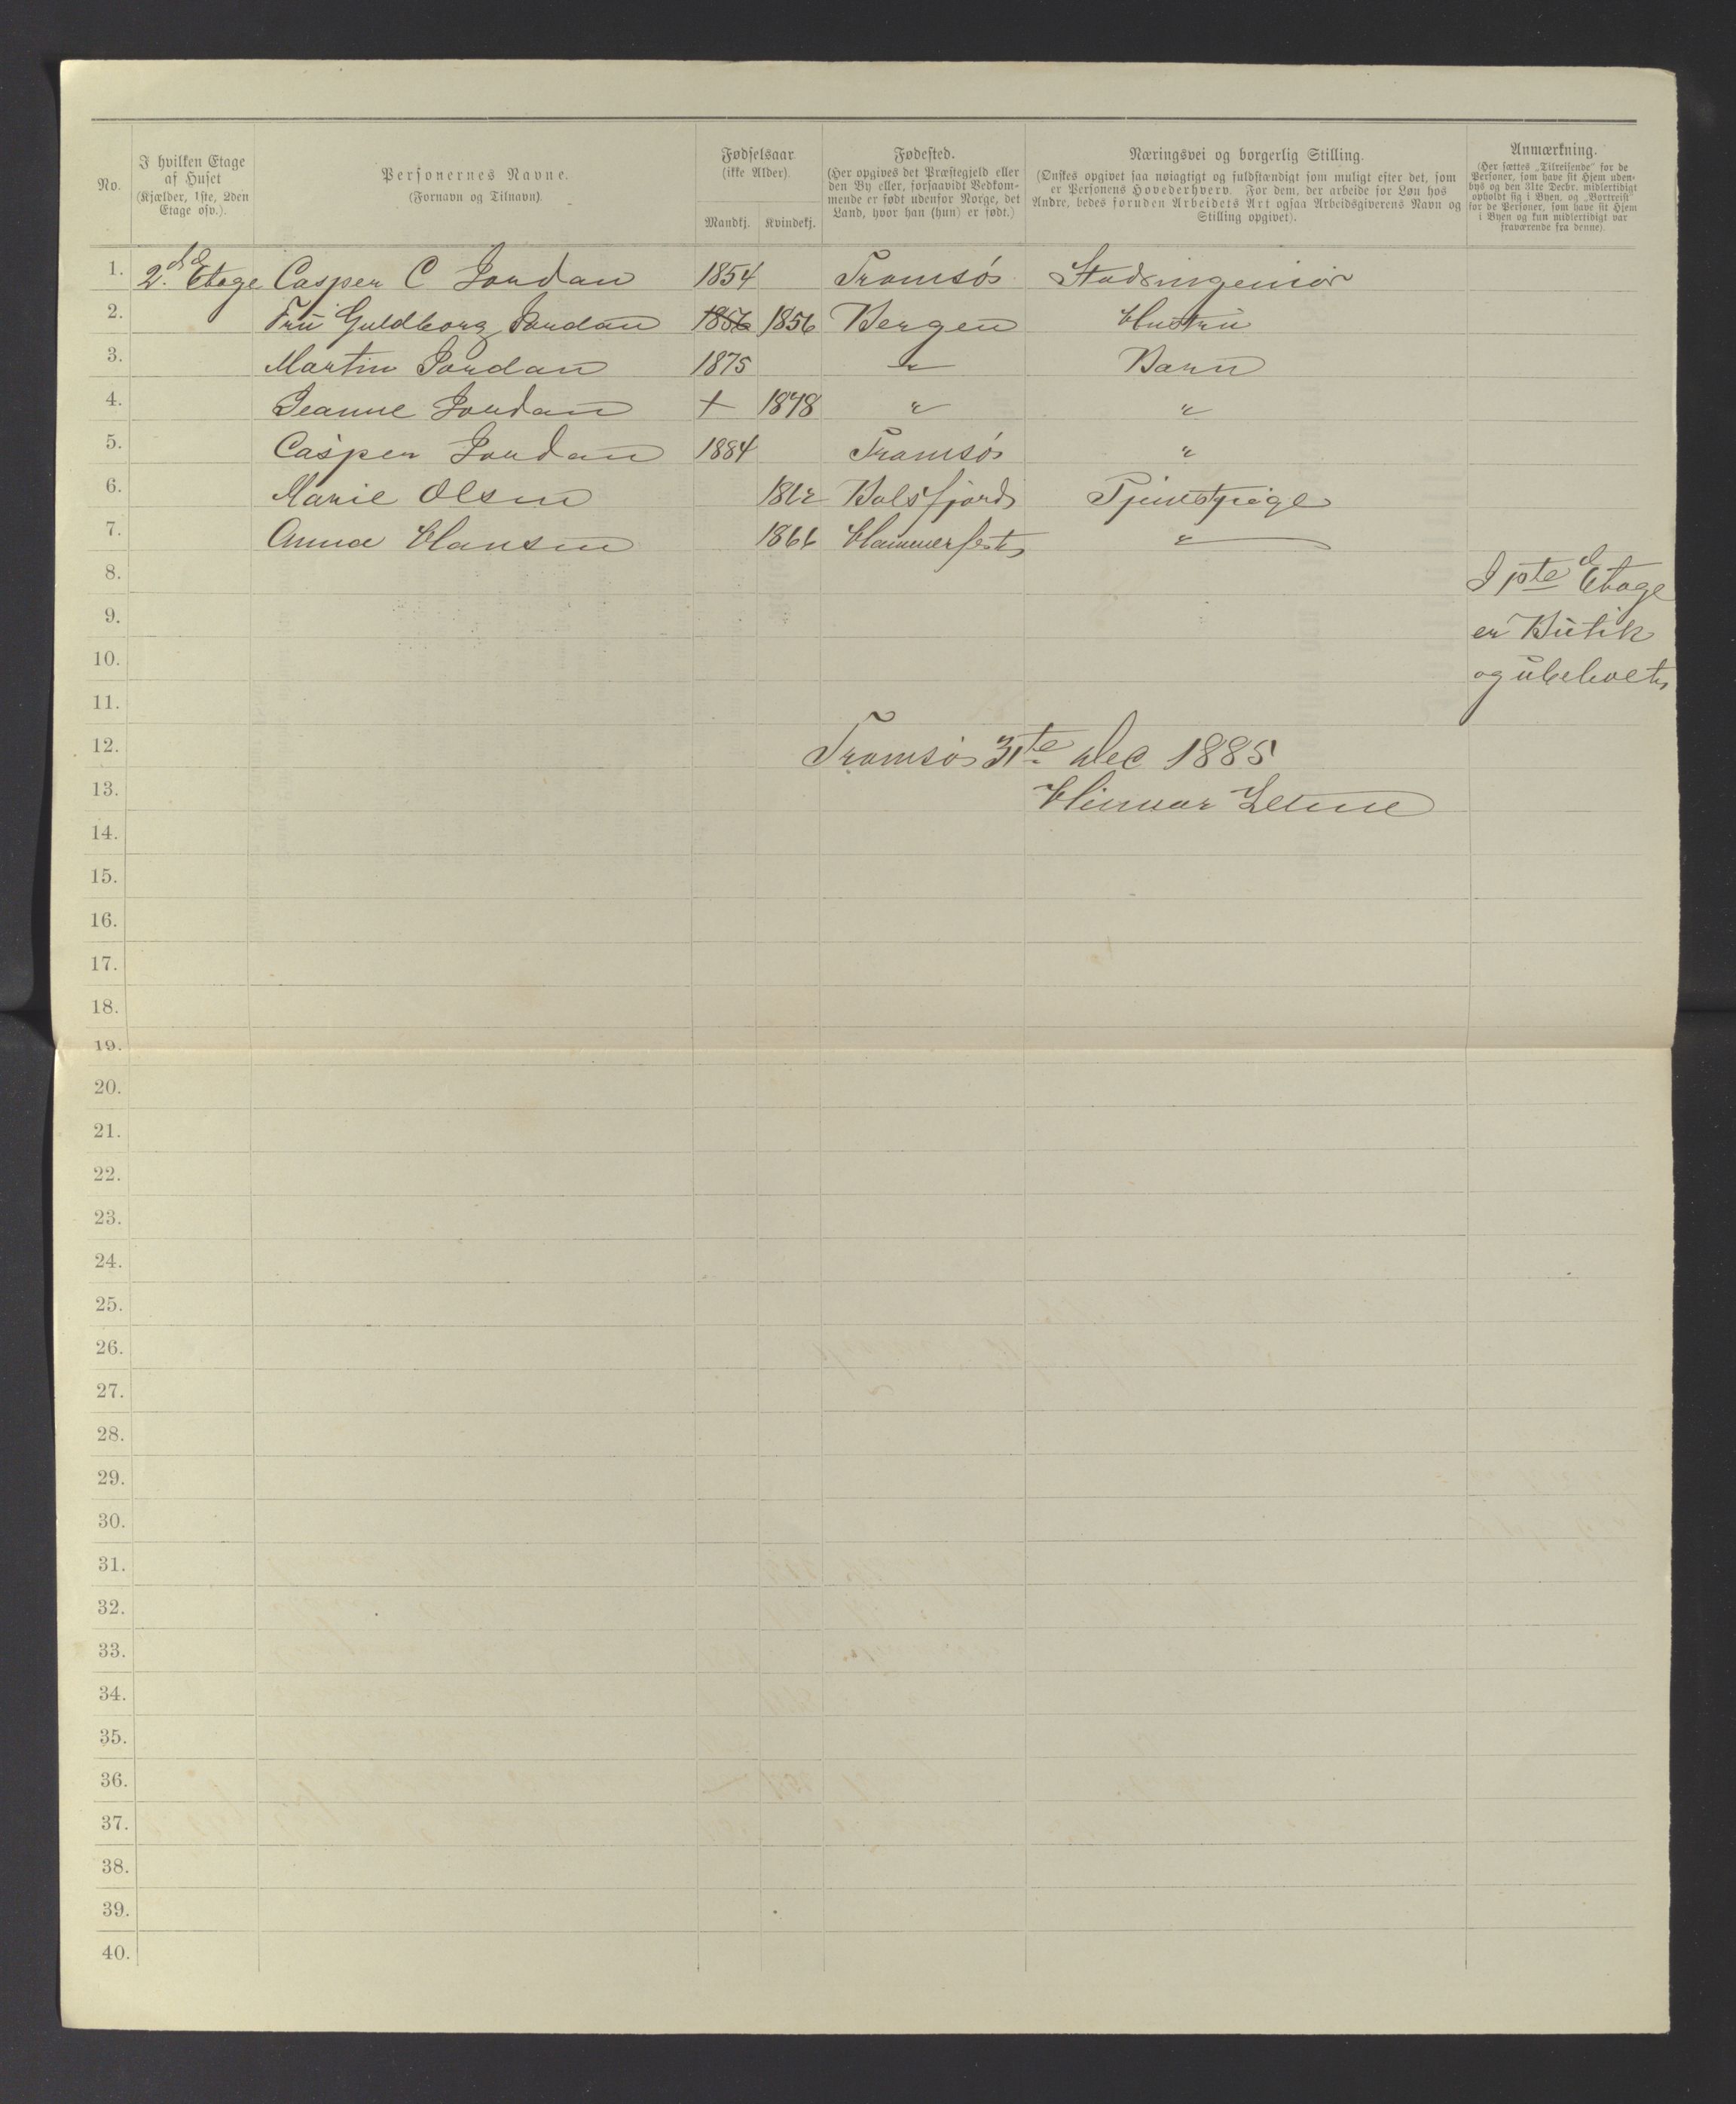 No.
I hvilken Etage
af Huset
(Kjælder, 1ste, 2den
Etage osv.).
Personernes Navne.
(Fornavn og Tilnavn).
Fødselsaar
(ikke Alder).
Mandkj. Kvindekj.
Fødested.
(Her opgives det Præstegjeld eller
den By eller, forsaavidt Vedkom-
mende er født udenfor Norge, det
Land, hvor han (hun) er født.)
Næringsvei og borgerlig Stilling.
(Ønskes opgivet saa nøiagtigt og fuldstændigt som muligt efter det, som
er Personens Hovederhverv. For dem, der arbeide for Løn hos
Andre, bedes foruden Arbeidets Art ogsaa Arbeidsgiverens Navn og
Stilling opgivet).
Anmærkning.
(Her sættes „Tilreisende“ for de
Personer, som have sit Hjem uden-
bys og den 31te Decbr. midlertidigt
opholdt sig i Byen, og „Bortreist“
for de Personer, som have sit Hjem
i Byen og kun midlertidigt var
fraværende fra denne).
1. 2de Etage Casper C Jordan 1854 Tromsö Stadsingeniör
2. Fru Guldborg Jordan 1856 1856 Bergen Hustru
3. Martin Jordan 1875 " Barn
4. Jeanne Jordan + 1878 " "
5. Casper Jordan 1884 Tromsö "
6. Marie Olsen 1862 Balsfjord Tjenstpige
7. Anna Hansen 1866 Hammerfest "
8. I 1ste Etage
9. er Butik
10. og ubeboet
11.
12. Tromsö 31te Dec 1885
13.
14.
15.
16.
17.
18.
19.
20.
21.
22.
23.
24.
25.
26.
27.
28.
29.
30.
31.
32.
33.
34.
35.
36.
37.
38.
39.
40.